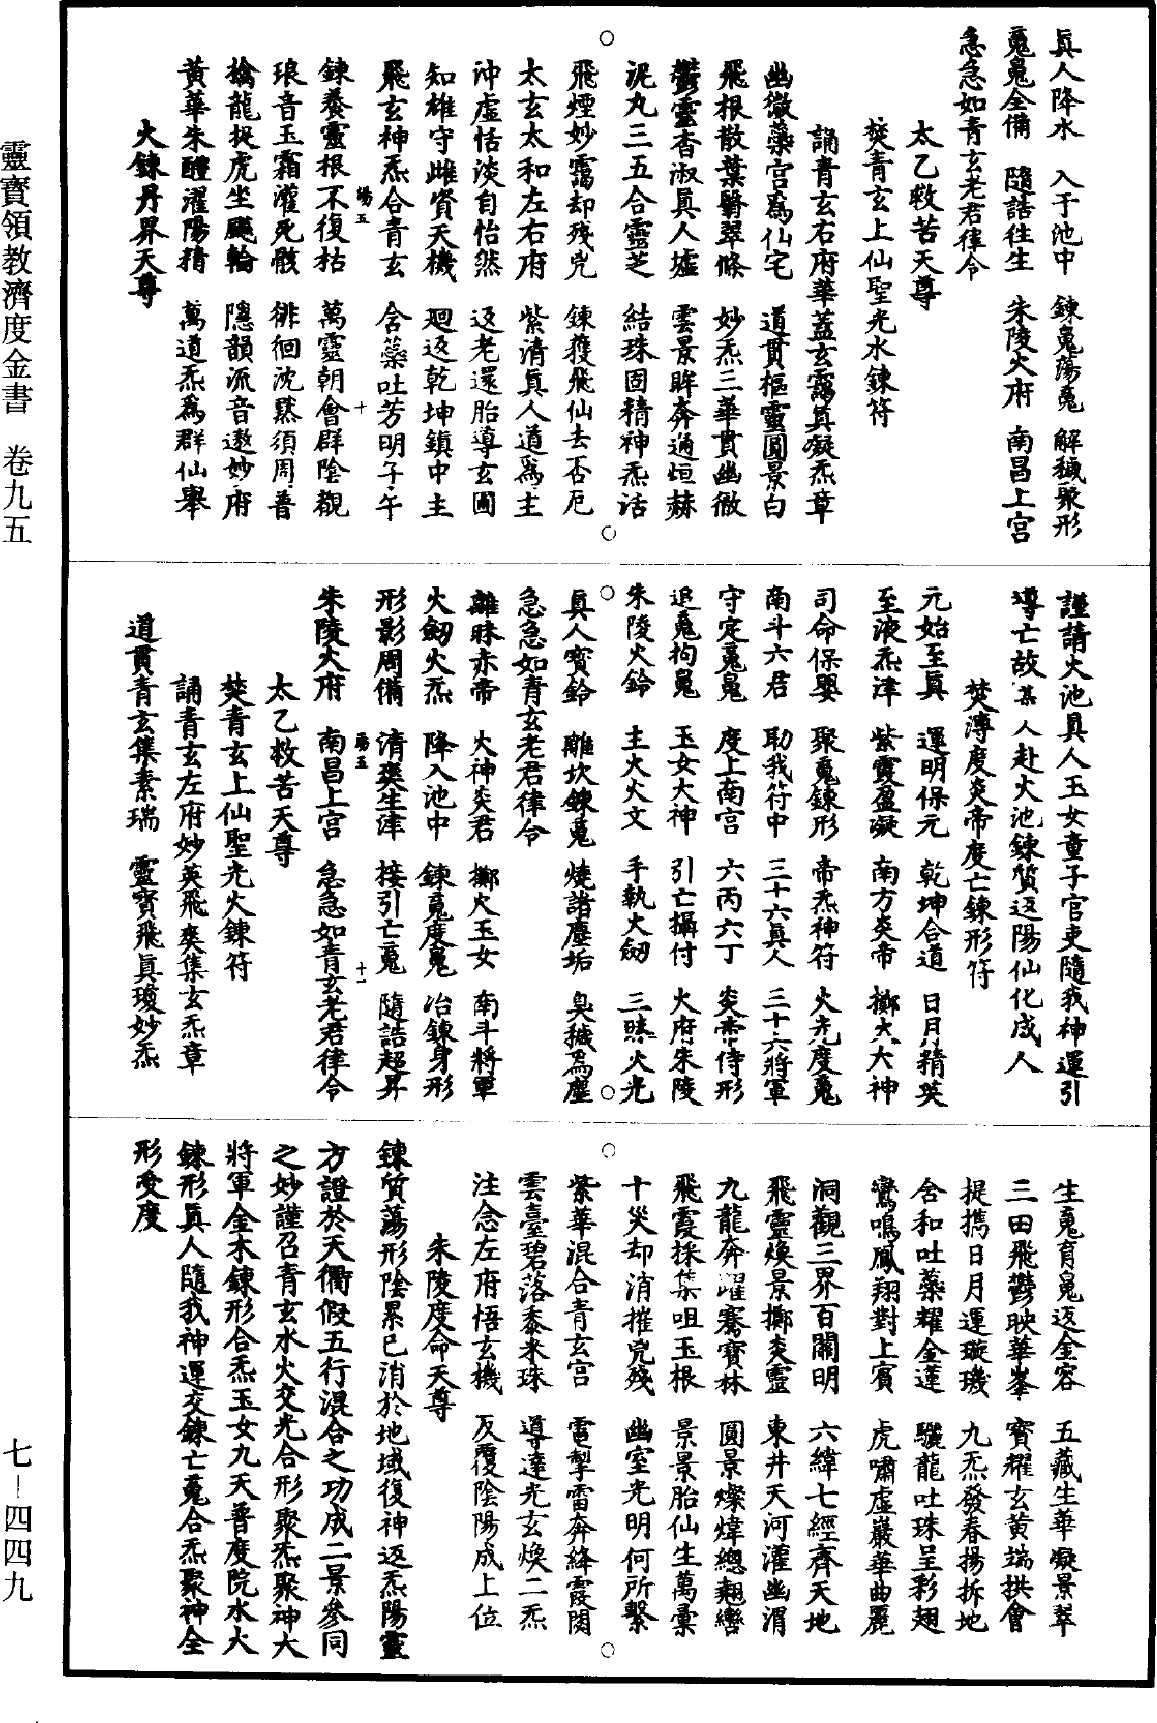 真人降水　入于池中　鍊䰟蕩䰟　解穢聚形
䰟䰟全備　隨誥往生　朱陵火府　南昌上宮
急急如青玄老君律令
太乙救苦天尊
焚青玄上仙聖光水鍊符
誦青玄右府華蓋玄靄真凝炁章
幽微蘂宮為仙宅　道貫樞靈圓景白
飛根散葉翳翠條　妙炁三華貫幽微
鬱靈杳淑眞人墟　雲景眸奔通垣赫
泥丸三五合靈芝　結珠固精神炁活
飛煙妙靄却殘兇　鍊獲飛仙去否厄
太玄太和左右府　紫清眞人道為主
沖虛恬淡自怡然　返老還胎導玄圃
知雄守雌資天機　廻返乾坤鎮中主
飛玄神炁合青玄　含蘂吐芳明子午
鍊養靈根不復枯　萬靈朝會群陰觀
琅音玉霜灌死骸　徘徊沈黙須周普
檎龍捉虎坐飈輪　隱韻流音遨妙府
黃華朱醴濯陽精　萬道炁為群仙舉
火鍊丹界天尊
謹請火池真人玉女童子官吏隨我神運引
導亡故某人赴火池鍊質返陽仙化成人
焚溥度炎帝度亡鍊形符
元始至眞　運明保元　乾坤合道　日月精英
至液炁津　紫霞盈凝　南方炎帝　擲火大神
司命保嬰　聚䰟鍊形　帝炁神符　火光度䰟
南斗六君　助我符中　三十六眞人　三十六將軍
守定䰟䰟　度上南宮　六丙六丁　炎帝侍形
追䰟拘䰟　玉女大神　引亡攝付　火府朱陵
朱陵火鈴　主火火文　手執火劒　三昧火光
真人寶鈴　離坎鍊䰟　燒諸塵垢　臭穢為塵
急急如青玄老君律令
離昧赤帝　火神炎君　擲火玉女　南斗將軍
火劒火炁　降入池中　鍊䰟度䰟　冶鍊身形
形影周備　清爽生津　接引亡䰟　隨誥超昇
朱陵火府　南昌上宮　急急如青玄老君律令
太乙救苦天尊
焚青玄上仙聖光火鍊符
誦青玄左府妙英飛爽集玄炁章
道貫青玄集素瑞　靈寶飛眞瓊妙炁
生䰟育䰟返金容　五藏生華凝景翠
三田飛鬱映華峯　寶耀玄黃端拱會
捉攜日月運璇璣　九炁發春揚拆地
含和吐蘂耀金蓮　驪龍吐珠呈彩翅
鸞鳴鳳翔對上賓　虎嘯虛巖華曲麗
洞觀三界百關明　六緯七經齊天地
飛靈煥景擲炎靈　東井天河灌幽渭
九龍奔躍騫寶林　圓景燦煒總翹轡
飛霞採集咀玉根　景景胎仙生萬彙
十災却消摧兇殘　幽室光明何所繫
紫華混合青玄宮　電掣雷奔絳霞閡
雲臺碧落黍米珠　導達光玄煥二炁
注念左府悟玄機　反覆陰陽成上位
朱陵度命天尊
鍊質蕩形陰累已消於地域復神返炁陽靈
方證於天衢假五行混合之功成二景參同
之妙謹召青玄水火交光合形聚炁聚神大
將軍金木鍊形合炁玉女九天普度院水火
鍊形真人隨我神運交鍊亡䰟合炁聚神全
形受度
靈寶領教濟度金書　卷九五
七－四四九